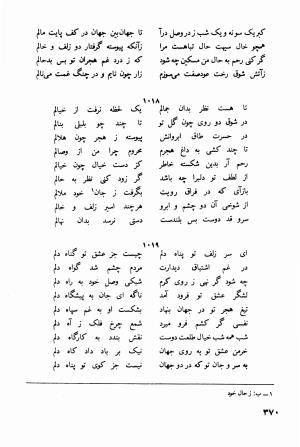 کبر یک سونه و یک شب ز در وصل درآ تا جهان‌بین جهان در کف پایت مالم
همچو خال سیهت حال تباهست مرا زآنکه پیوسته گرفتار دو زلف و خالم
گر کنی رحم به حال من مسکین چه شود که ز درد غم هجران تو بس بدحالم
زآتش شوق رخت عودصفت می‌سوزم زار چون نایم و در چنگ غمت می‌نالم
۱۰۱۸
تا هست نظر بدان جمالم یک لحظه نرفت از خیالم
در شوق دو روی چون گل تو تا چند چو بلبلی بنالم
در حسرت طاق ابروانش پیوسته ز هجر چون هلالم
تا چند کشی به داغ هجرم محروم چرا من از وصالم
رحم آر بدین شکسته خاطر کز دست خیال چون خیالم
از لطف تو دلبرا چه باشد گر زود کنی نظر به حالم
بازآی که در فراق رویت بگرفت ز جان۱ خود ملالم
از شوخی آن دو چشم و ابرو هرچند اسیر زلف و خالم
سرو قد دوست بس بلندست دستی نرسد بدان نهالم
۱۰۱۹
ای سر زلف تو پناه دلم چیست جز عشق تو گناه دلم
در غم اشتیاق دیدارت مردم چشم شد گواه دلم
چه شود گر نهی ز روی کرم شبکی وصل خود به راه دلم
لشگر عشق تو فرود آمد ناگه ای جان به پیشگاه دلم
تیغ هجر تو در جهان بنهاد بشکست او به غم سپاه دلم
نفسی گر کشم فرو میرد شمع چرخ فلک ز آه دلم
شب همه شب خیال طلعت دوست نقش بندد به کارگاه دلم
خرمن عشق تو به روی جهان نیک بر باد داد کاه دلم
به سر و جان تو که در دو جهان نیست جز کوی تو پناه دلم
۱ـ ب: ز حال خود
۳۷۰